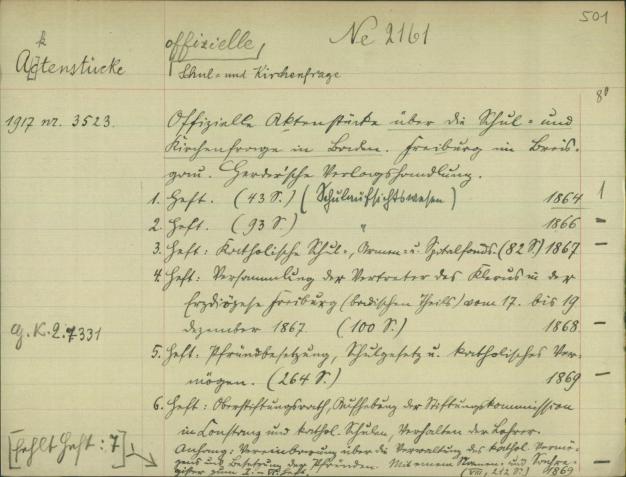 501
k
Actenstücke
offizielle,
Ne 2161
Schul- und Kirchenfrage
8°
1917 nr. 3523.
Offizielle Aktenstücke über die Schul- und
Kirchenfrage in Baden. Freiburg im Breis-
gau. Herder'sche Verlagshandlung.
1. Heft. (43 S.) (Schulaufsichtswesen) 1864 1
2. Heft. (93 S.) " 1866 –
3. Heft: Katholische Schul-, Armen- u. Spitalfonds. (82 S.) 1867 –
4. Heft: Versammlung der Vertreter des Klerus in der
Erzdiözese Freiburg (badischen Theils) vom 17. bis 19
Dezember 1867 (100 S.) 1868 –
G. K. 2. 7331
5. Heft: Pfründbesetzung, Schulgesetz u. katholisches Ver-
mögen. (264 S.) 1869 –
6. Heft: Oberstiftungsrath, Aufhebung der Stiftungskommission
in Constanz und kathol. Schulen, Verhalten der Lehrer.
Anhang: Vereinbarung über die Verwaltung des kathol. Vermö-
gens und Besetzung der Pfründen. Mit einem Namen- und Sachre-
gister zum I.–VI. Heft. (VIII, 212 S.) 1869 –
[fehlt Heft: 7]